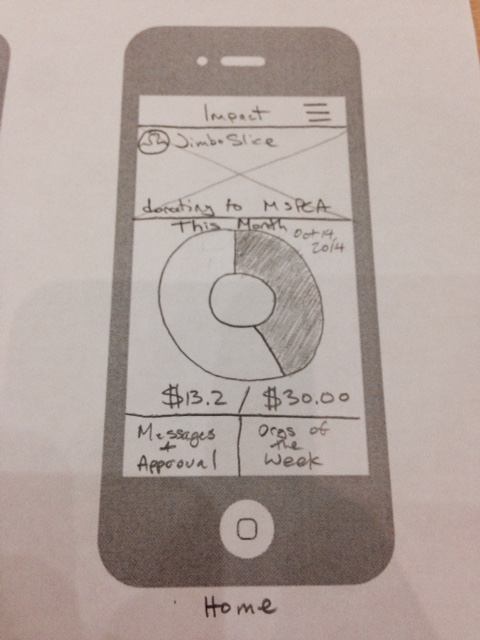 Impact
JimboSlice
donating to MSPCA
This Month
Oct 14,
2014
$13.2 / $30.00
Messages
+
Approval
Orgs of
the
Week
Home